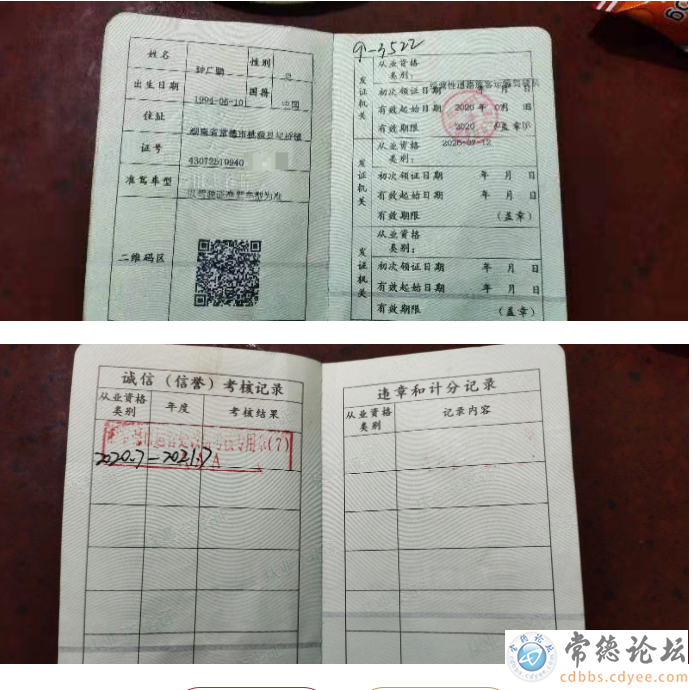 9-3522
姓名 性别 男
出生日期 1994-06-10 国籍 中国
住址
证号 43072519940
准驾车型 以驾驶证准驾车型为准
二维码区
发证机关
从业资格类别:
初次领证日期 年 月 日
有效起始日期 2020 年 07月 日
有效期限 2020 (盖章)
发证机关
从业资格类别:
2026-07-12
初次领证日期 年 月 日
有效起始日期 年 月 日
有效期限 (盖章)
发证机关
从业资格类别:
初次领证日期 年 月 日
有效起始日期 年 月 日
有效期限 (盖章)
诚信(信誉)考核记录
从业资格类别 年度 考核结果
2020.7-2021.7 A
违章和计分记录
从业资格类别 记录内容
常德论坛
cdbbs.cdyee.com